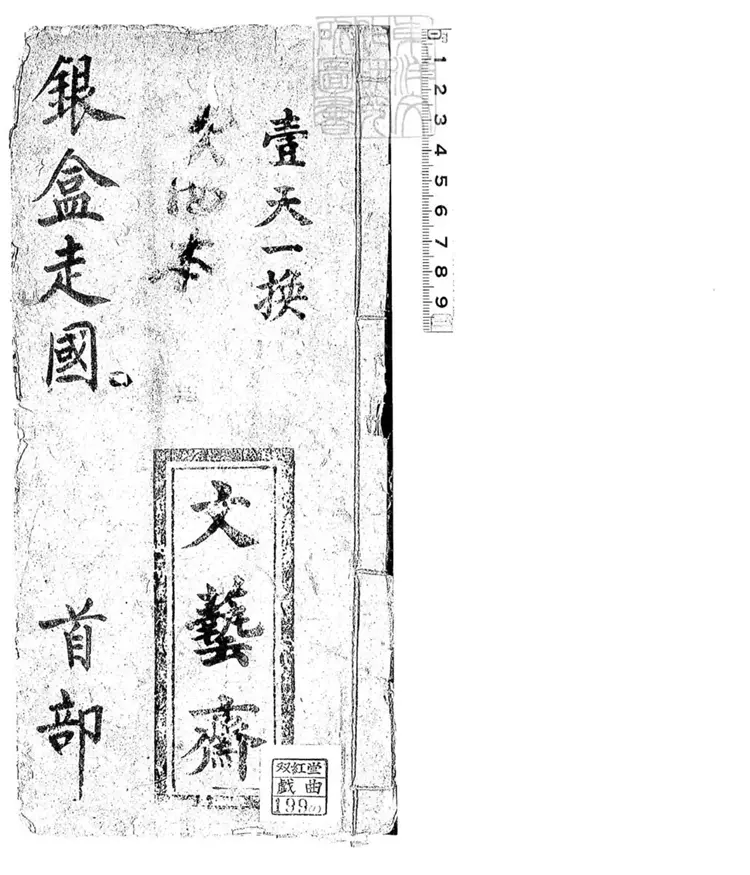 壹天一換
銀盒走國。
首部
文藝齋
双紅堂
戲曲
199(1)
0 1 2 3 4 5 6 7 8 9